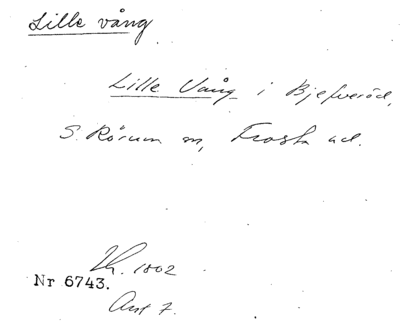 Lille vång
Lille Vång i Bjefveröd,
S. Rörum sn, Frosta hd.
Lh. 1802
Nr 6743.
Ant 7.